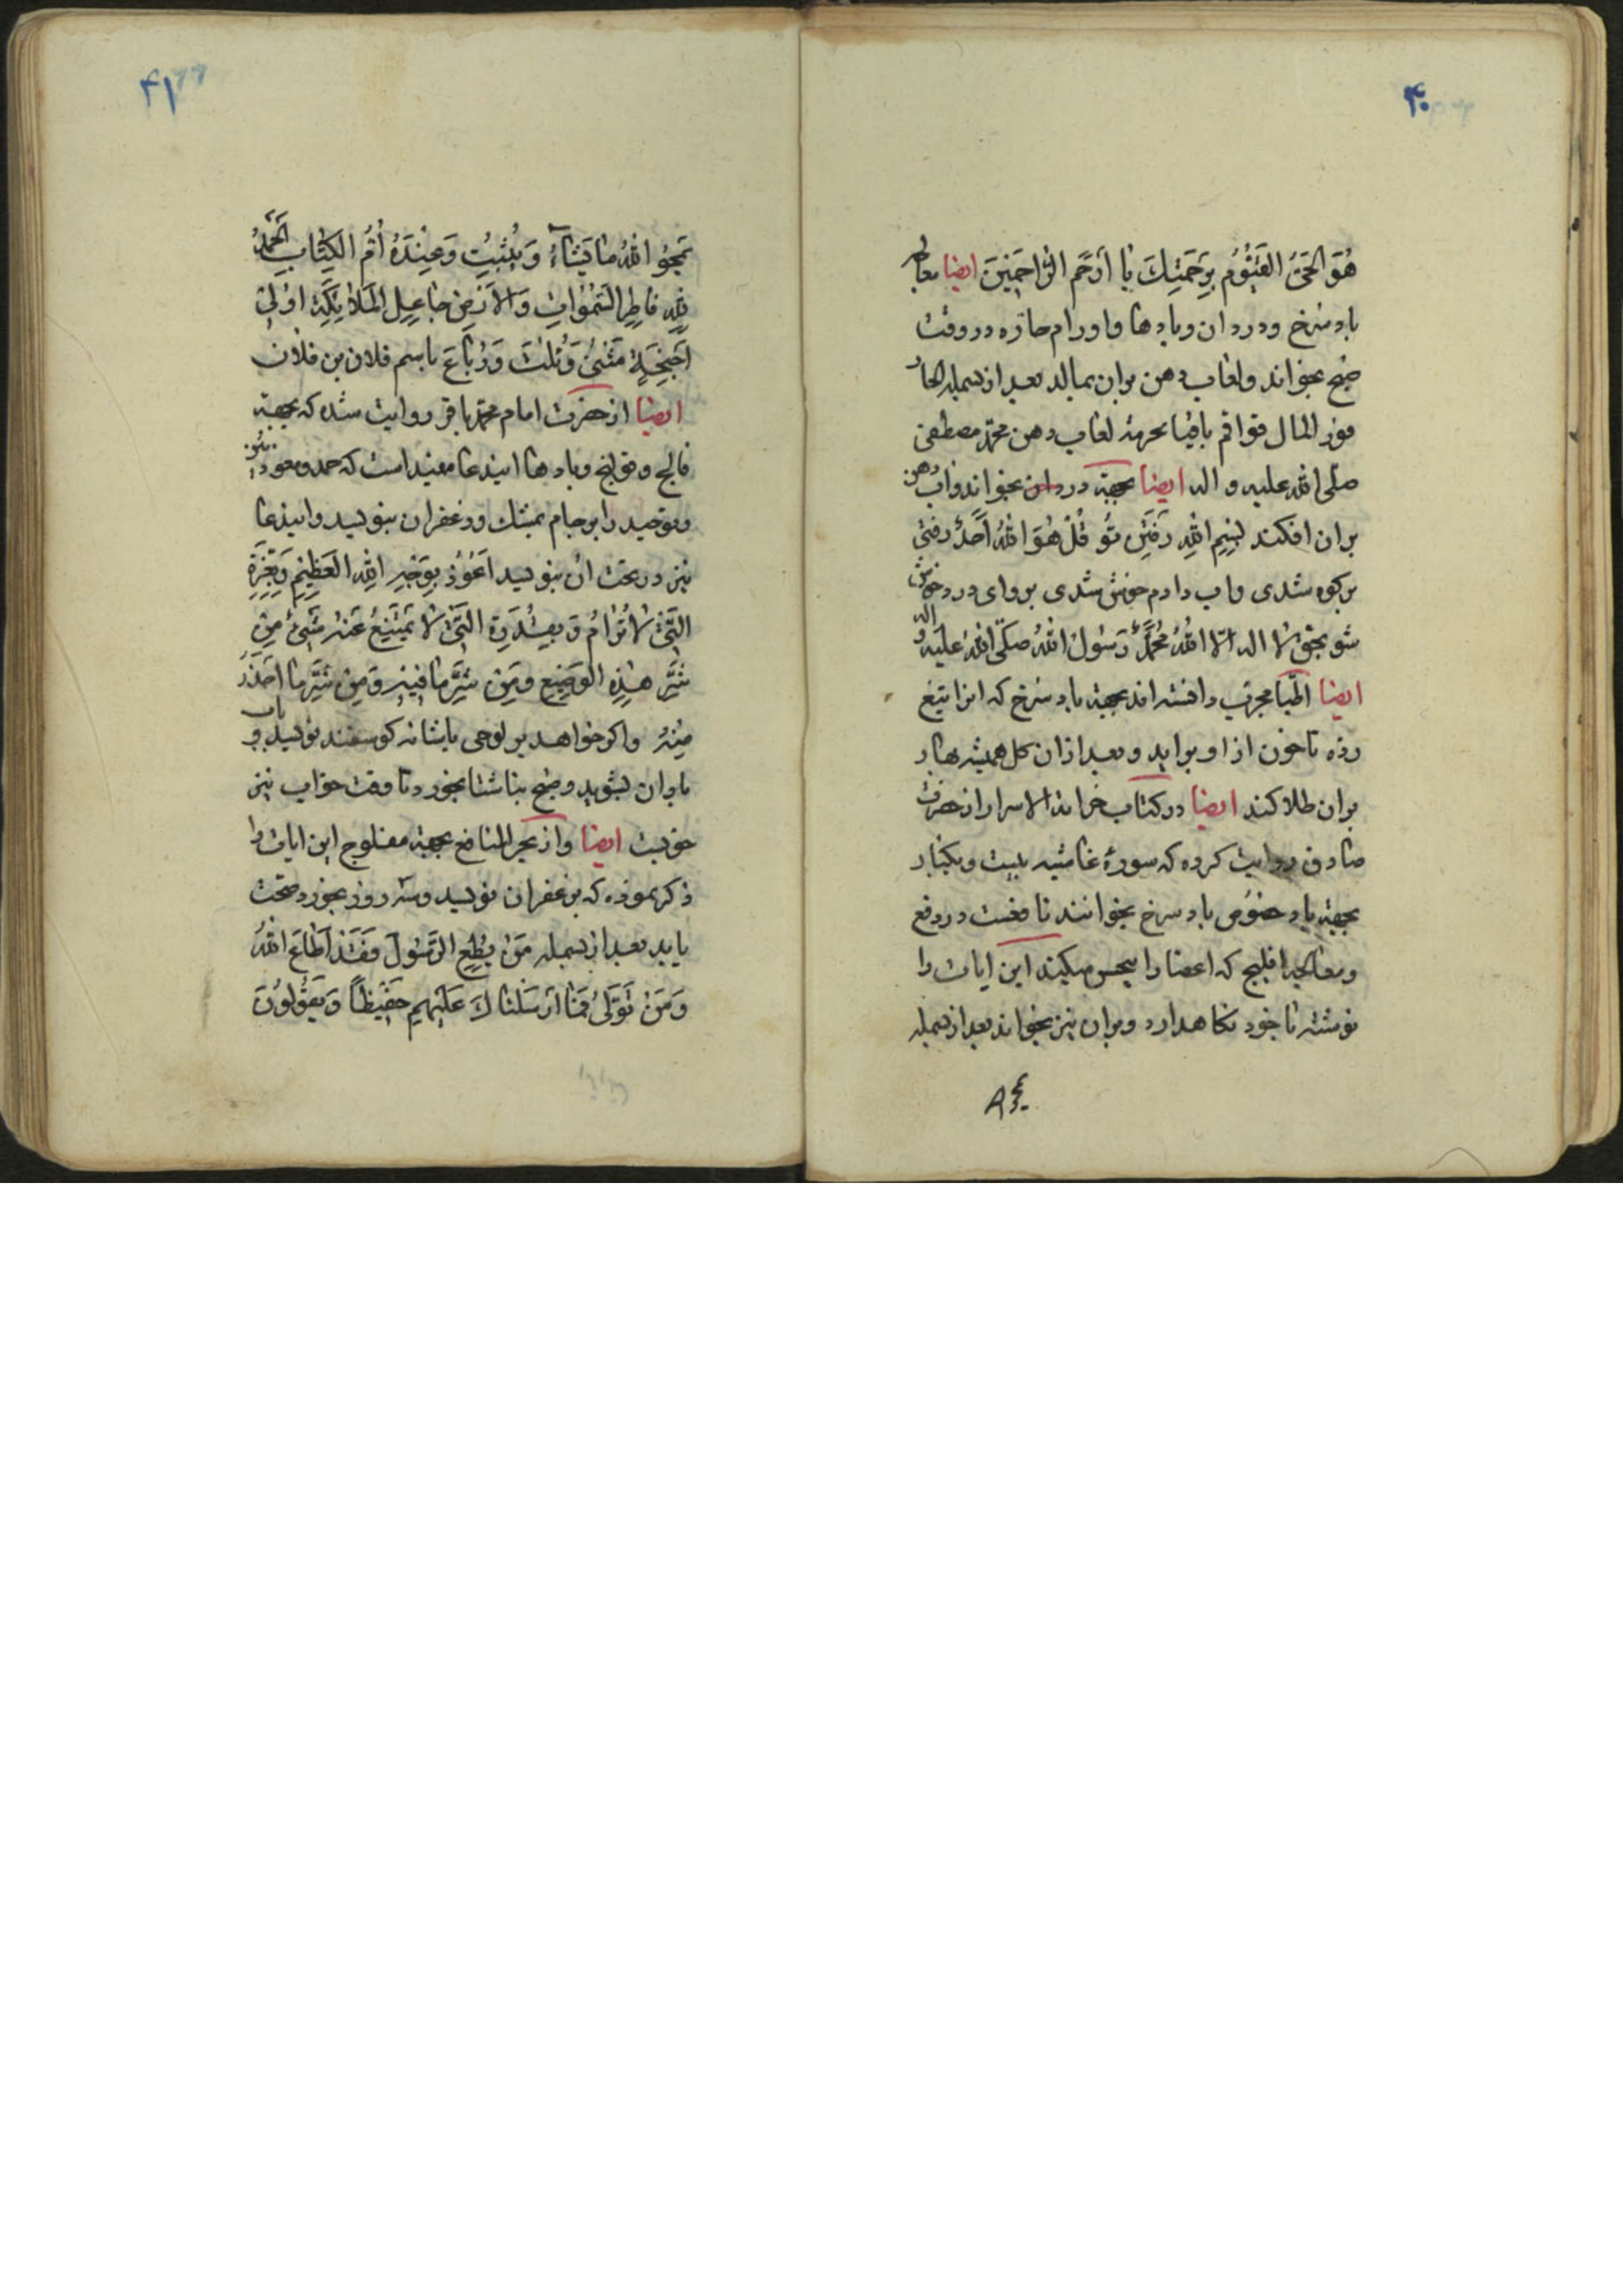 ۴۰
هُوَ الحَیُّ القَیُّومُ بِرَحمَتِكَ یا أرحَم الرّاحِمینَ ایضا معالجه
باد سرخ ودردان وبادها واورام حاره در وقت
صبح بخواند ولعاب دهن بران بمالد بعد از بسمله الحار
صلی الله علیه و اله ایضا بجهة درد بخواند واب دهن
بران افکند بِسمِ اللهِ رَفتَن تُو قُل هُوَ اللهُ اَحَدٌ رفتی
بر کوه شدی واب دادم خوش شدی بروای درد خوش
شو بحق لا اله الّا اللهُ مُحَمَّدٌ رَسُولُ اللهُ صلّی اللهُ عَلَیهِ و اله
ایضا اطبا مجرب دانسته اند بجهة باد سرخ که انرا تیغ
زده تا خون ازا و براید و بعد ازان کل همیشه بهار
بران طلا کند ایضا در کتاب خزانة الاسرار از حضرت
صادق روایت کرده که سورهٔ غاشیه بیست ویکبار
بجهة باد خصوص باد سرخ بخوانند نافعست در دفع
ومعالجه افلیج که اعضا را بیحس میکند این ایات را
نوشته با خود نکاهدارد وبران نیز بخواند بعد از بسمله
۴۱
یَمحُو اللهُ ما یَشآءُ وَیُثبِتُ وَعِندَهُ اُمُّ الکِتابِ الحَمدُ
لِلّهِ فاطِرِ السَّمٰواتِ وَالاَرضِ جاعِلِ المَلائِکَةِ اوُلی
اَجنِحَةٍ مَثنیٰ وَثُلٰثَ وَرُباعَ باسم فلان بن فلان
ایضا از حضرت امام محمد باقر روایت شده که بجهة
فالج وقولنج وبادها ایندعا مفید است که حمد ومعوذتین
وتوحید را بر جام بمشك وزعفران بنویسد وایندعا
نیز در تحت ان بنویسد اَعُوذُ بِوَجهِ اللهِ العَظیمِ وَبِعِزَّتِهِ
الَّتی لا تُرامُ وَ بِقُدرَتِهِ الَّتی لا یَمتَنِعُ عَنهُ شَیءٌ مِن
شَرِّ هٰذِهِ الوَجَعِ وَمِن شَرِّ ما فیهِ وَمِن شَرِّ ما اَحذَرُ
مِنهُ واکر خواهد بر لوحی یا شانه کوسفند نویسد و باب
باران بشوید وصبح بناشتا بخورد تا وقت خواب نیز
خوبست ایضا واز بحر المنافع بجهة مفلوج این ایات را
ذکر نموده که بزعفران نویسد وسه روز بخورد صحت
یابد بعد از بسمله مَن یُطِعِ الرَّسُولَ فَقَد اَطاعَ اللهُ
وَمَن تَوَلّیٰ فَمٰا اَرسَلناكَ عَلَیهِم حَفیظاً وَیَقُولوُنَ